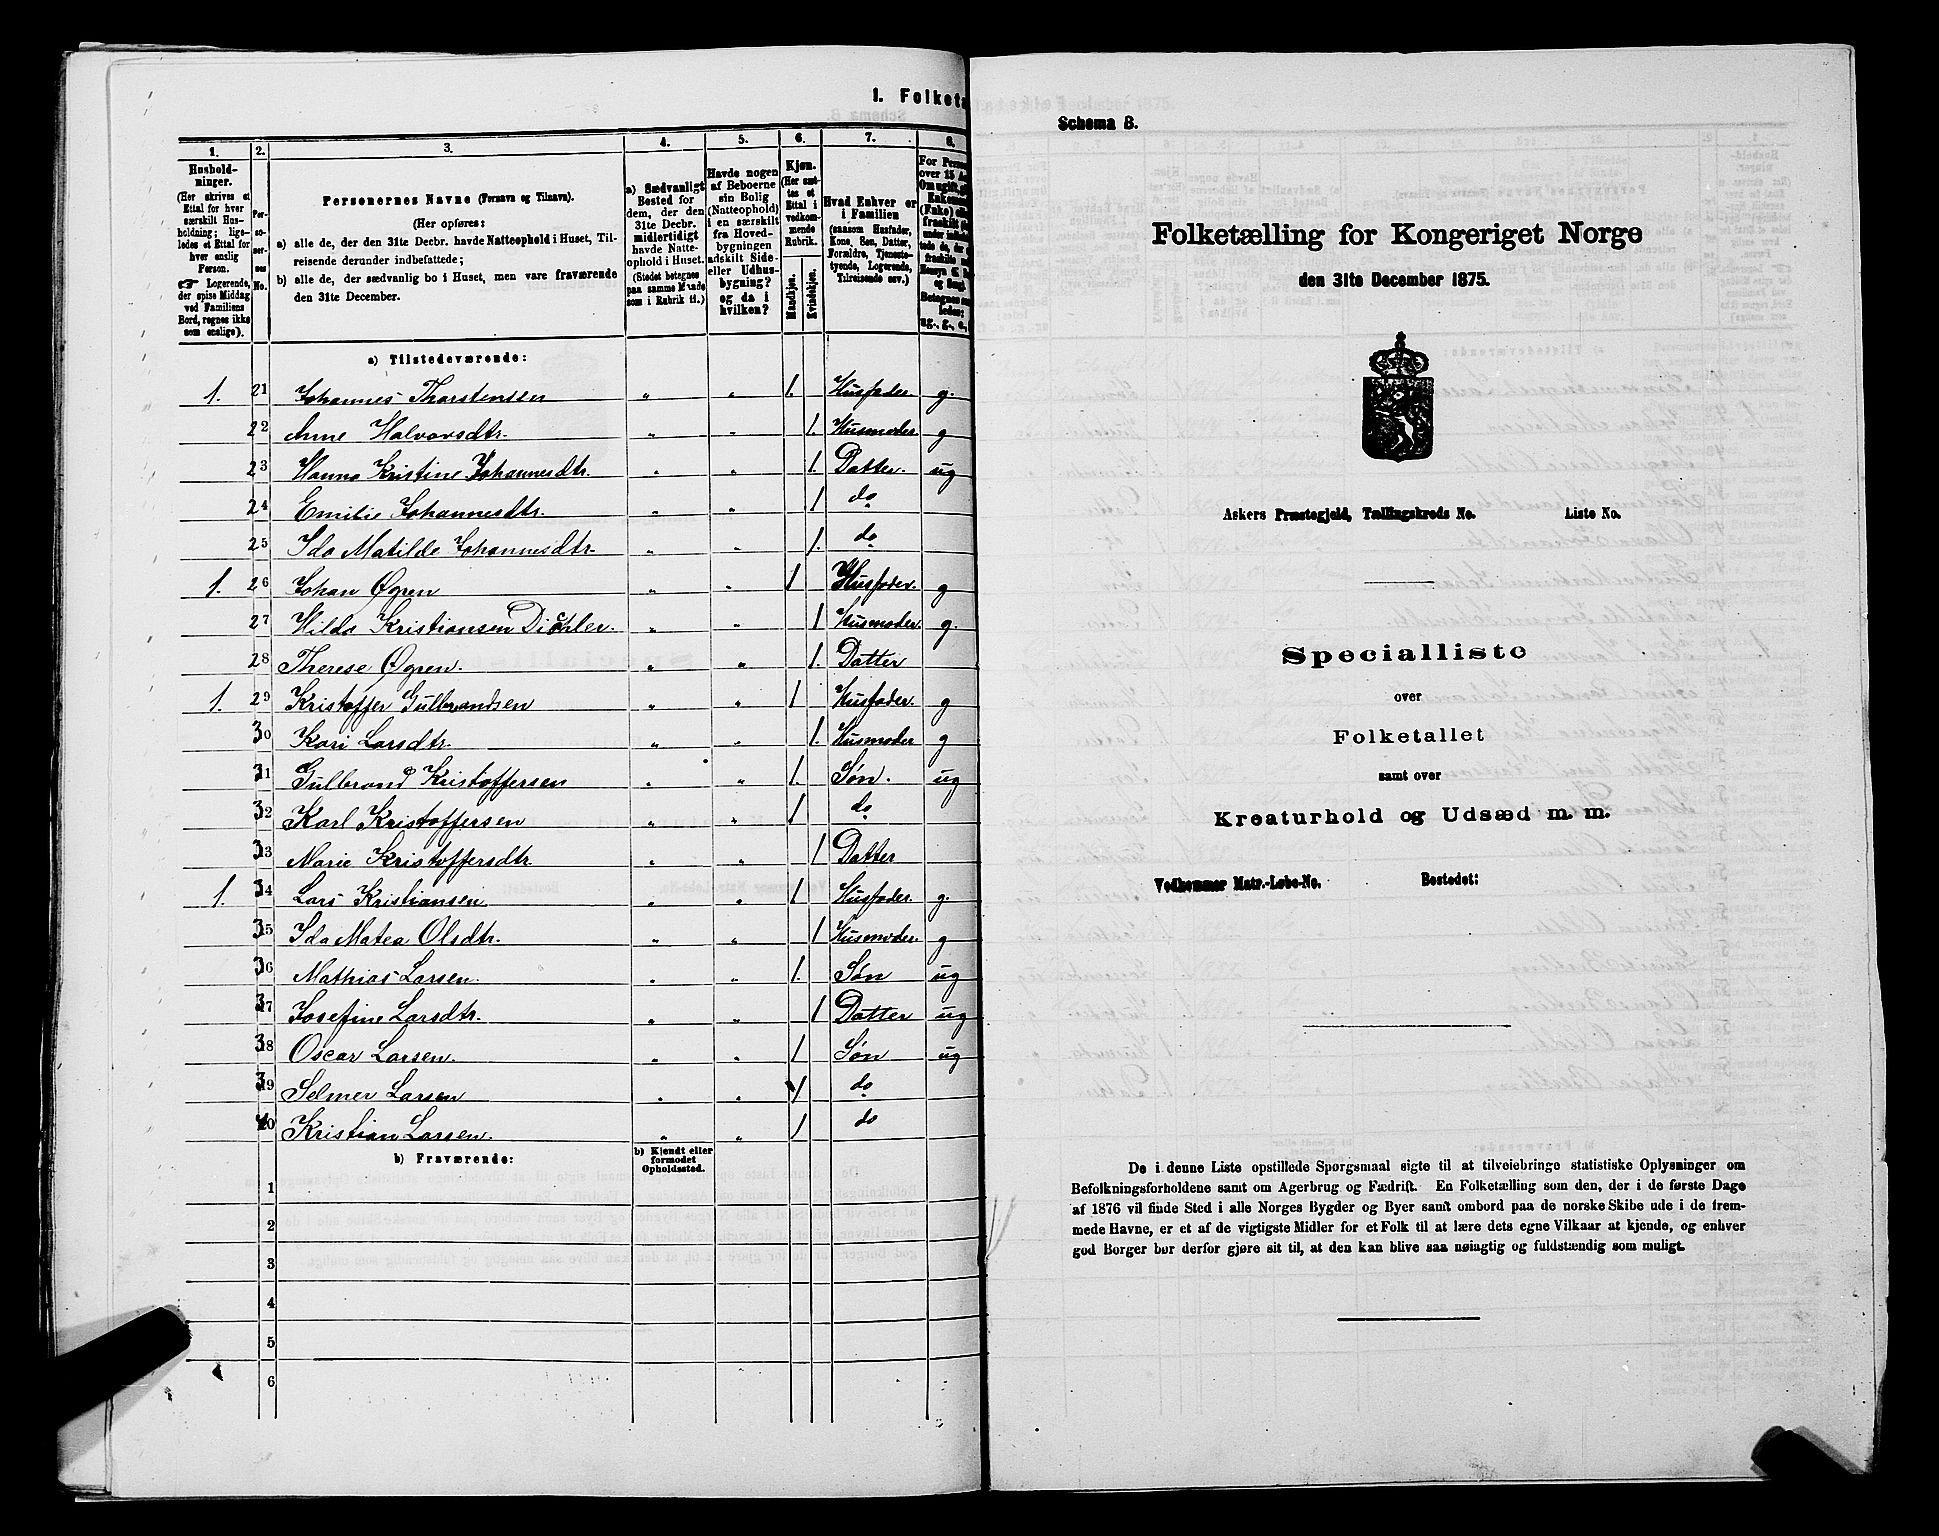 1. Folketa
1. 2. 3. 4. 5. 6. 7. 8.
Hushold-
ninger.
(Her skrives et
Ettal for hver
særskilt Hus-
holdning; lige-
ledes et Ettal for
hver enslig
Person.
☞ Logerende,
der spise Middag
ved Familiens
Bord, regnes ikke
som enslige).
Per-
so-
ner-
nes
No.
Personernes Navne (Fornavn og Tilnavn).
(Her opføres:
a) alle de, der den 31te Decbr. havde Natteophold i Huset, Til-
reisende derunder indbefattede;
b) alle de, der sædvanlig bo i Huset, men vare fraværende
den 31te December.
a) Sædvanligt
Bosted for
dem, der den
31te Decbr.
midlertidigt
havde Natte-
ophold i Huset.
(Stedet betegnes
paa samme Maade
som i Rubrik 11.)
Havde nogen
af Beboerne
sin Bolig
(Natteophold)
i en særskilt
fra Hoved-
bygningen
adskilt Side-
eller Udhus-
bygning?
og da i
hvilken?
Kjøn.
(Her sæt-
tes et
Ettal i
vedkom-
mende
Rubrik.
Mandkjøn.
Kvindekjøn.
Hvad Enhver er
i Familien
(saasom Husfader,
Kone, Søn, Datter,
Forældre, Tjeneste-
tyende, Logerende,
Tilreisende osv.)
For Perso
over 15 Aa
Om ugift, gi
Enkema
(Enke) ell
fraskilt
Betegnes saa
ledes:
ug., g., e.,
a) Tilstedeværende:
1. 21 Johannes Thorstensen " " 1. Husfader g.
22 Anne Halvorsdtr. " " 1. Husmoder g
23 Hanna Kristine Johannesdtr. " " 1. Datter. ug
24 Emilie Johannesdtr. " " 1 do
25 Ida Matilde Johannesdtr. " " 1. do
1. 26 Johan Øgren " " 1 Husfader. g
27 Hilda Kristiansen Dichler. " " 1 Husmoder. g.
28 Therese Øgren. " " 1. Datter
1. 29 Kristoffer Gulbrandsen " " 1 Husfader. g
30 Kari Larsdtr. " " 1. Husmoder g
31 Gulbrand Kristoffersen " " 1. Søn. ug
32 Karl Kristoffersen " " 1 do
33 Marie Kristoffersdtr. " " 1 Datter
1. 34 Lars Kristiansen " " 1 Husfader. g.
35 Ida Matea Olsdtr. " " 1 Husmoder. g
36 Mathias Larsen. " " 1. Søn ug
37 Josefine Larsdtr. " " 1 Datter ug
38 Oscar Larsen. " " 1 Søn ug
39 Selmer Larsen " " 1 do
40 Kristian Larsen. " " 1 do
b) Fraværende:
b) Kjendt eller
formodet
Opholdssted.
1
2
3
4
5
6
Schema 8.
Folketælling for Kongeriget Norge
den 31te December 1875.
Askers Præstegjeld, Tællingskreds No. Liste No.
Specialliste
over
Folketallet
samt over
Kreaturhold og Udsæd m. m.
Vedkommer Matr.-Løbe-No. Bostedet:
De i denne Liste opstillede Spørgsmaal sigte til at tilveiebringe statistiske Oplysninger om
Befolkningsforholdene samt om Agerbrug og Fædrift. En Folketælling som den, der i de første Dage
af 1876 vil finde Sted i alle Norges Bygder og Byer samt ombord paa de norske Skibe ude i de frem-
mede Havne, er et af de vigtigste Midler for et Folk til at lære dets egne Vilkaar at kjende, og enhver
god Borger bør derfor gjøre sit til, at den kan blive saa nøiagtig og fuldstændig som muligt.